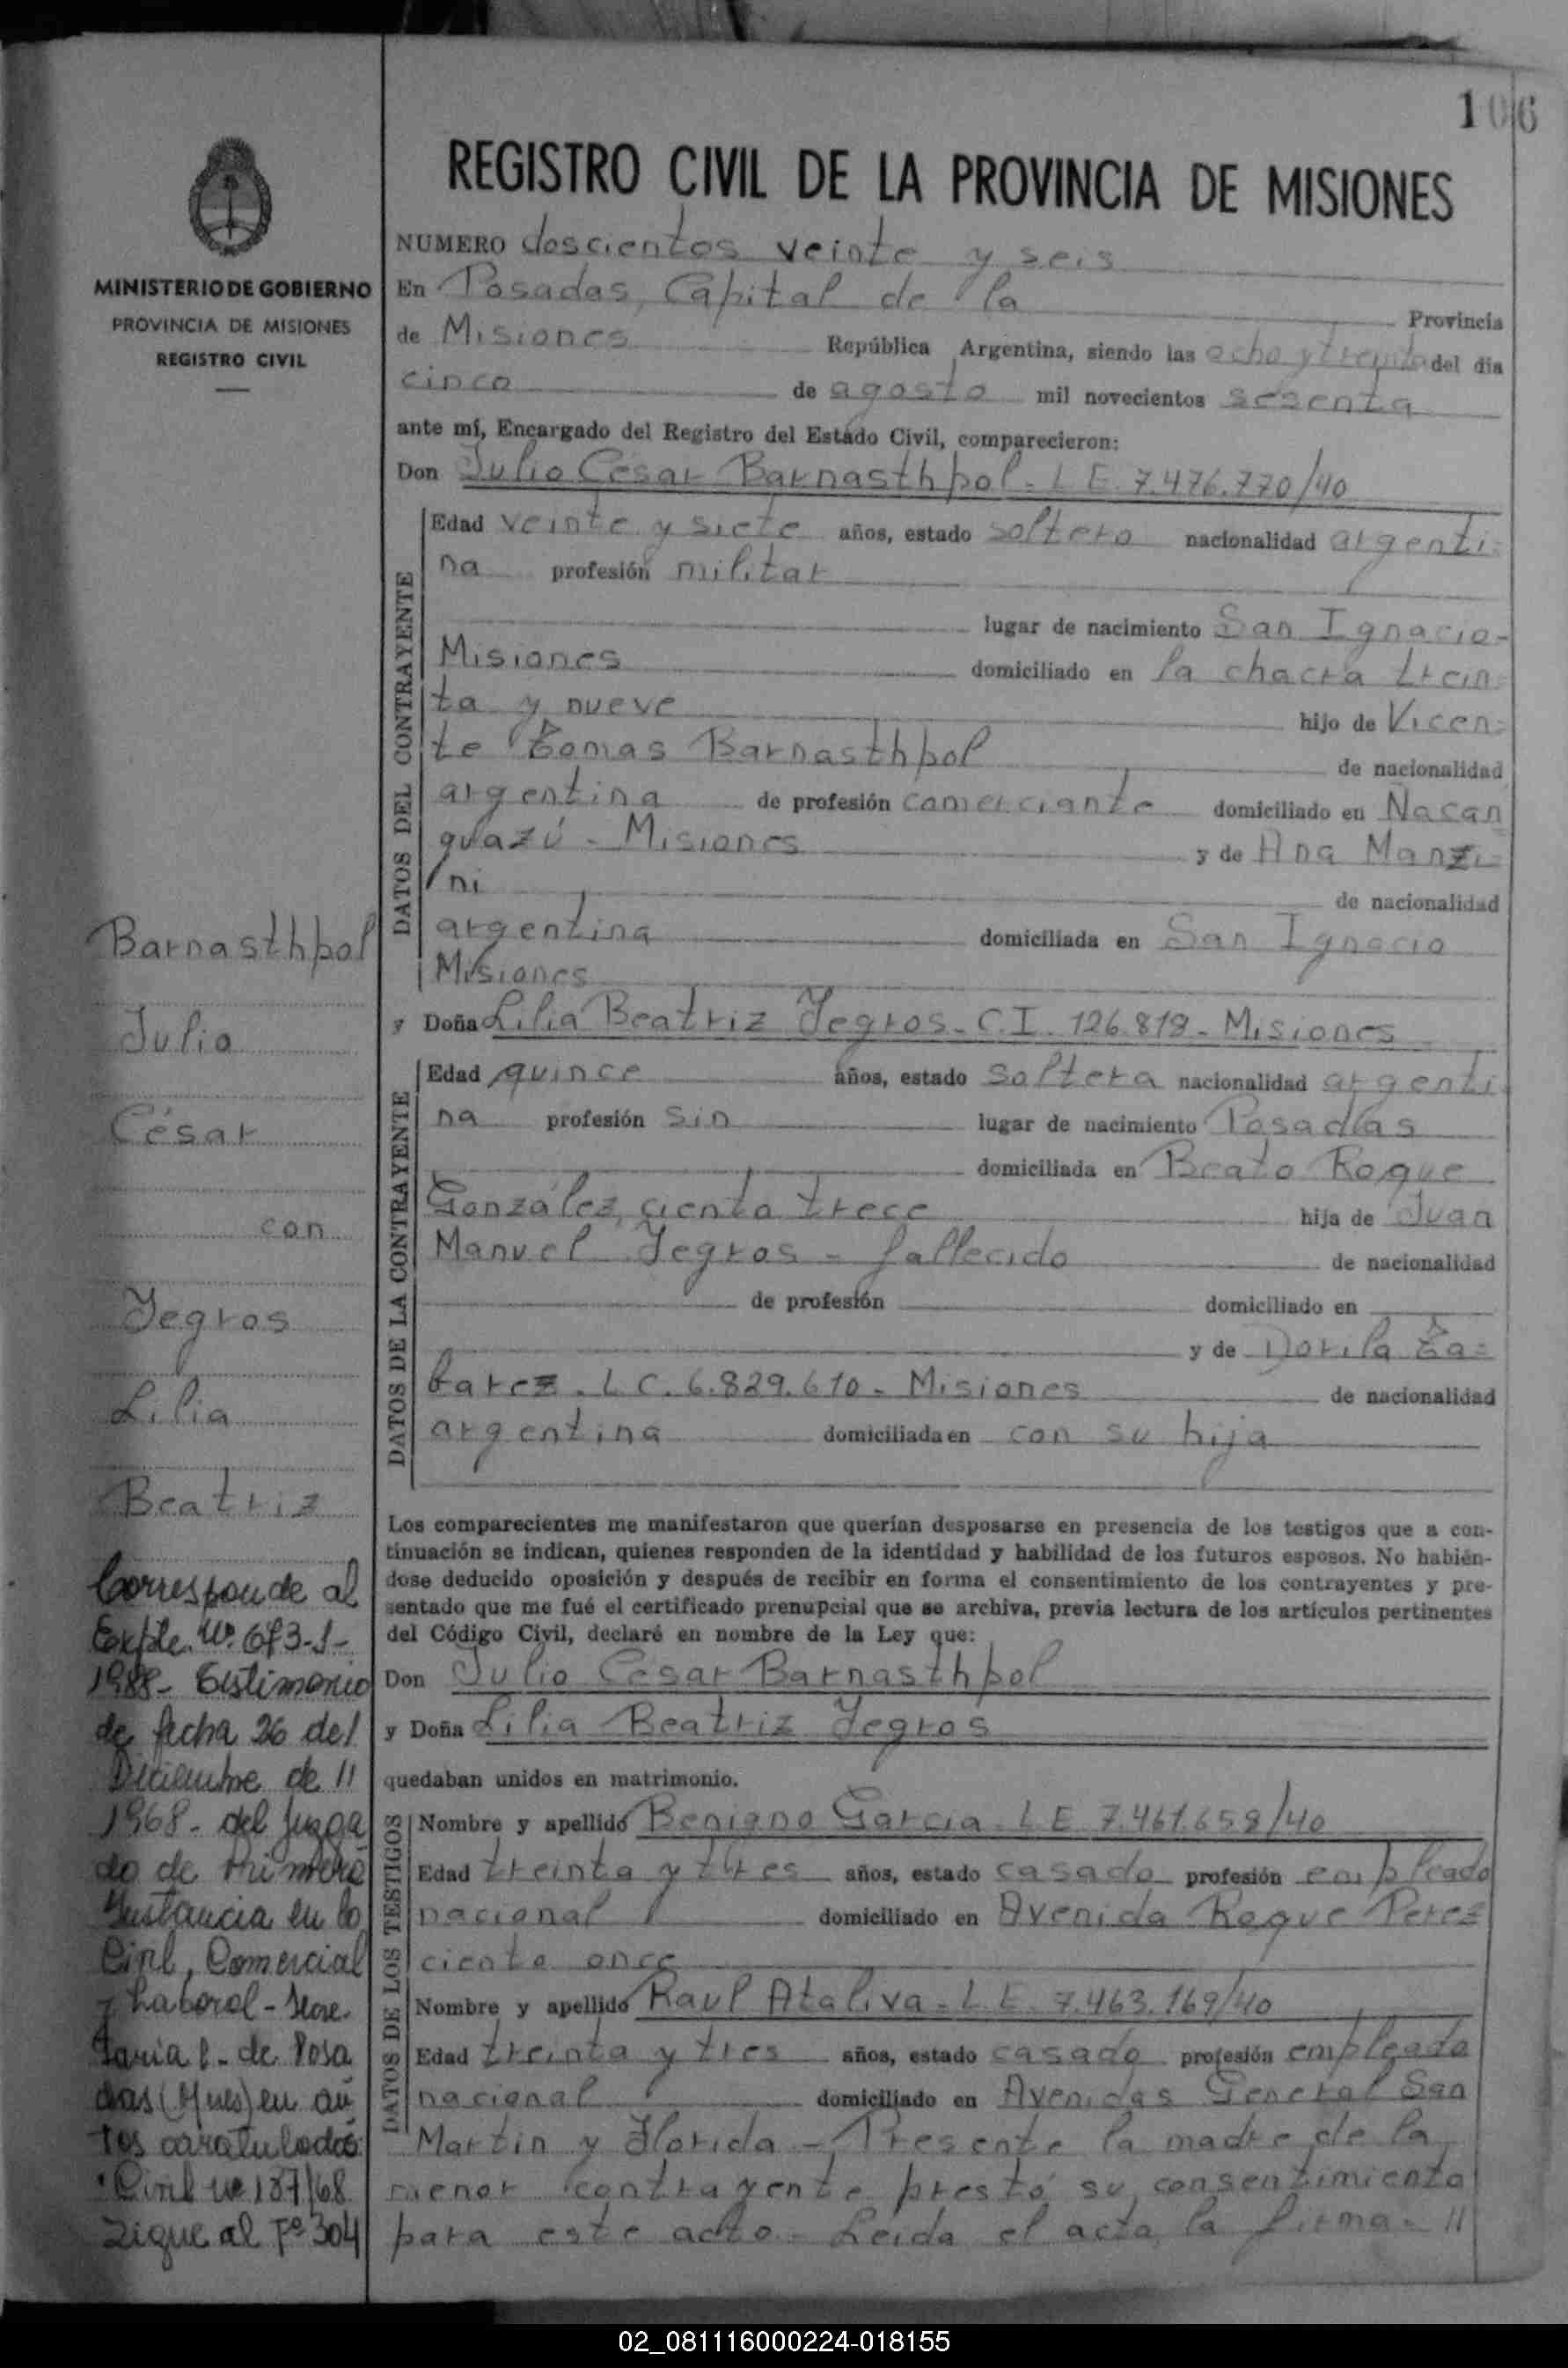 106
REGISTRO CIVIL DE LA PROVINCIA DE MISIONES
MINISTERIO DE GOBIERNO
PROVINCIA DE MISIONES
REGISTRO CIVIL
NUMERO doscientos veinte y seis
En Posadas, Capital de la Provincia
de Misiones República Argentina, siendo las ocho y treinta del dia
cinco de agosto mil novecientos sesenta
ante mí, Encargado del Registro del Estado Civil, comparecieron:
Don Julio César Barnasthpol - L E 7.476.770/40
DATOS DEL CONTRAYENTE
Edad veinte y siete años, estado soltero nacionalidad argenti-
na profesión militar
lugar de nacimiento San Ignacio-
Misiones domiciliado en la chacra trein-
ta y nueve hijo de Vicen-
te Tomas Barnasthpol de nacionalidad
argentina de profesión comerciante domiciliado en Ñacan
guazú - Misiones y de Ana Manzi-
ni de nacionalidad
argentina domiciliada en San Ignacio
Misiones
y Doña Lilia Beatriz Yegros - C.I. 126.819 - Misiones
DATOS DE LA CONTRAYENTE
Edad quince años, estado soltera nacionalidad argenti
na profesión sin lugar de nacimiento Posadas
domiciliada en Beato Roque
González, ciento trece hija de Juan
Manuel Yegros - fallecido de nacionalidad
de profesión domiciliado en
y de Dorila Ta-
barez - L C. 6.829.610 - Misiones de nacionalidad
argentina domiciliada en con su hija
Los comparecientes me manifestaron que querían desposarse en presencia de los testigos que a con-
tinuación se indican, quienes responden de la identidad y habilidad de los futuros esposos. No habién-
dose deducido oposición y después de recibir en forma el consentimiento de los contrayentes y pre-
sentado que me fué el certificado prenupcial que se archiva, previa lectura de los artículos pertinentes
del Código Civil, declaré en nombre de la Ley que:
Don Julio Cesar Barnasthpol
y Doña Lilia Beatriz Yegros
quedaban unidos en matrimonio.
DATOS DE LOS TESTIGOS
Nombre y apellido Benigno Garcia - L E 7.461.658/40
Edad treinta y tres años, estado casado profesión empleado
nacional domiciliado en Avenida Roque Perez
ciento once
Nombre y apellido Raul Ataliva - L E 7.463.169/40
Edad treinta y tres años, estado casado profesión empleado
nacional domiciliado en Avenidas General San
Martin y Florida - Presente la madre de la
menor contrayente prestó su consentimiento
para este acto - Leida el acta la firma - //
Barnasthpol
Julio
César
con
Yegros
Lilia
Beatriz
Corresponde al
Expte. Nº 673-J-
Testimonio
de fecha 26 de/
Diciembre de //
1968 - del Juzga
do de Primera
Instancia en lo
Civil, Comercial
y Laboral - Secre-
taria 1 - de Posa
das (Mnes) en au
tos caratulados:
"Civil Nº 187/68
Sigue al Fº 304
02_081116000224-018155